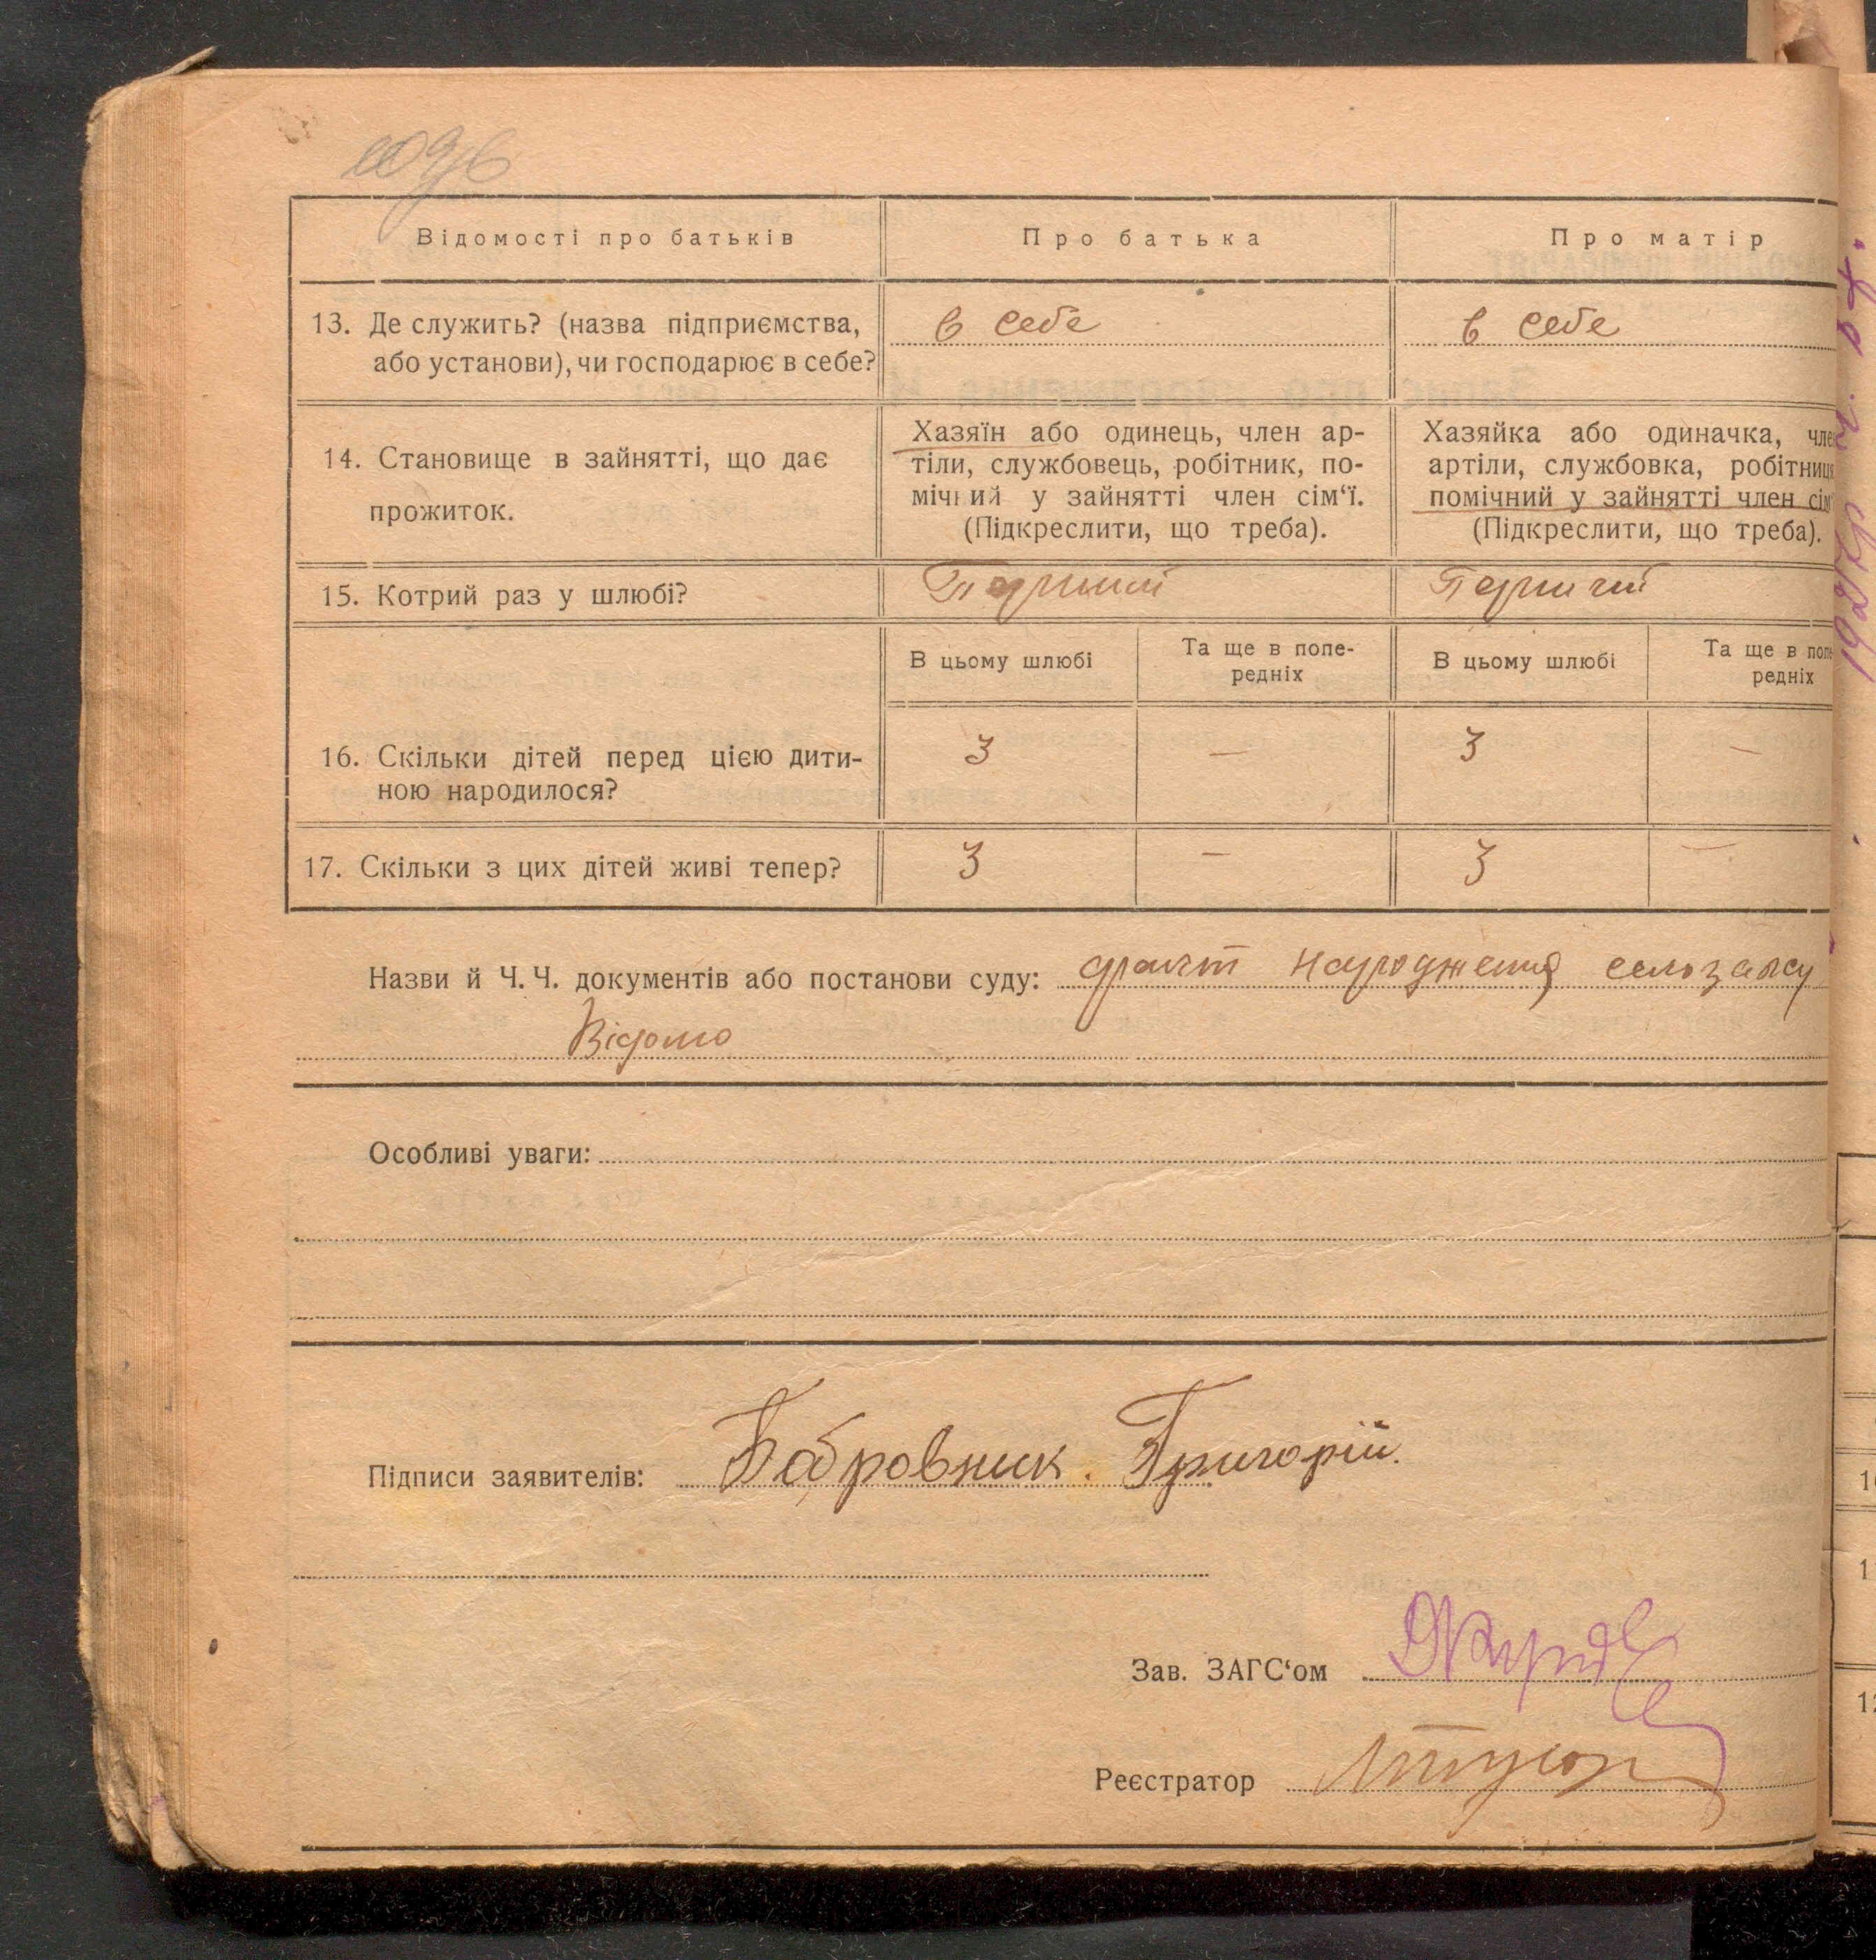 Відомості про батьків
Про батька
Про матір
13. Де служить? (назва підприємства,
або установи), чи господарює в себе?
в себе
в себе
14. Становище в зайнятті, що дає
прожиток.
Хазяїн або одинець, член ар-
тіли, службовець, робітник, по-
мічний у зайнятті член сім‘ї.
(Підкреслити, що треба).
Хазяйка або одиначка, член
артіли, службовка, робітниця
помічний у зайнятті член сім
(Підкреслити, що треба).
15. Котрий раз у шлюбі?
Перший
Перший
В цьому шлюбі
Та ще в попе-
редніх
В цьому шлюбі
Та ще в попе
редніх
16. Скільки дітей перед цією дити-
ною народилося?
3
—
3
—
17. Скільки з цих дітей живі тепер?
3
—
3
—
Назви й Ч. Ч. документів або постанови суду: факт народження сельзагсу
Відомо
Особливі уваги:
Підписи заявителів: Бобровник. Григорій.
Зав. ЗАГС‘ом
Реєстратор